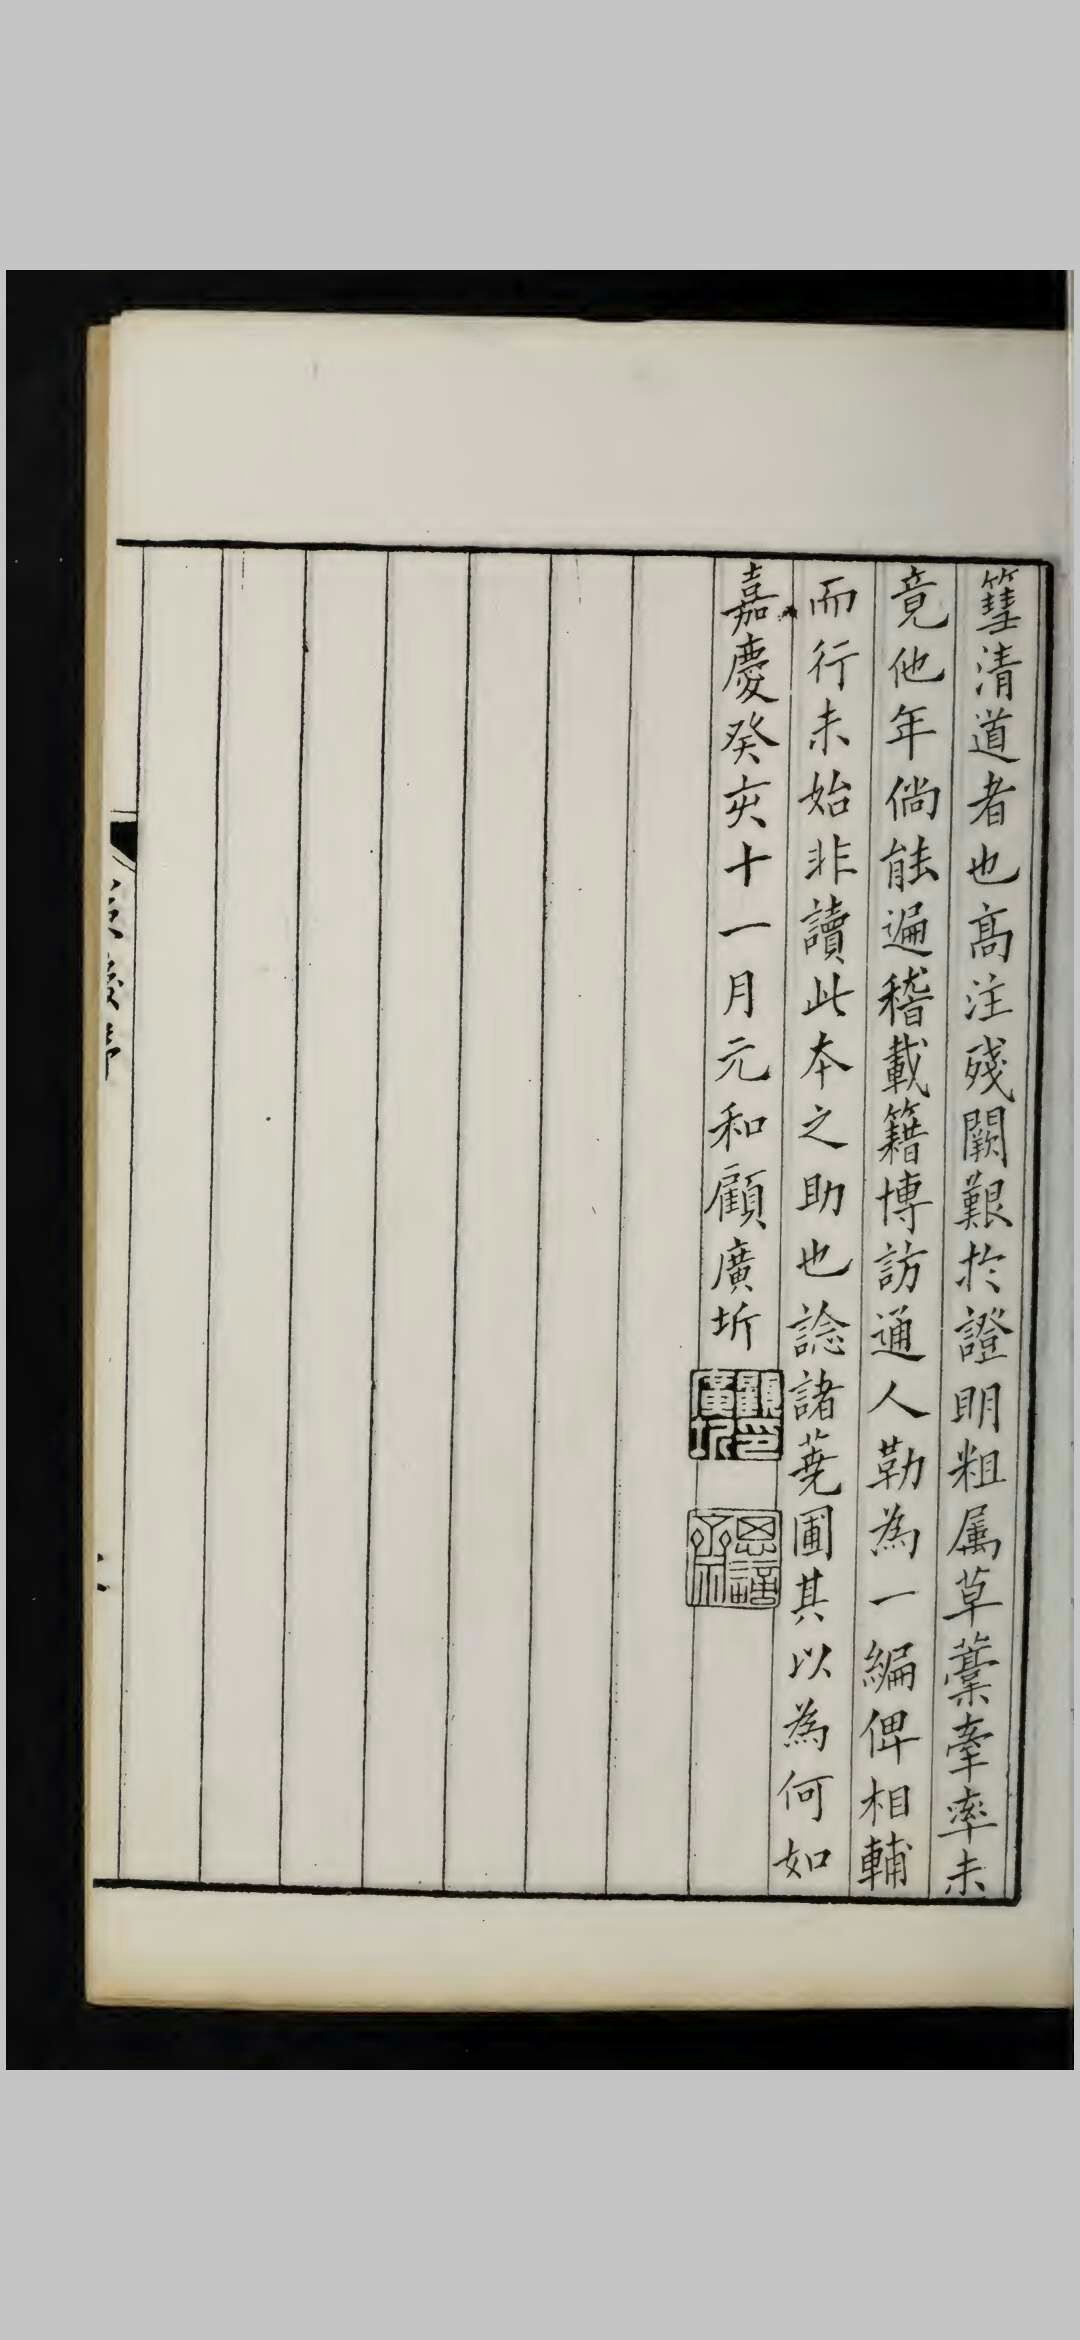 篲清道者也高注殘闕艱於證明粗属草藁牽率未
竟他年倘能遍稽載籍博訪通人勒為一編俾相輔
而行未始非讀此本之助也諗諸蕘圃其以為何如
嘉慶癸亥十一月元和顧廣圻
顧印廣圻
思適齋